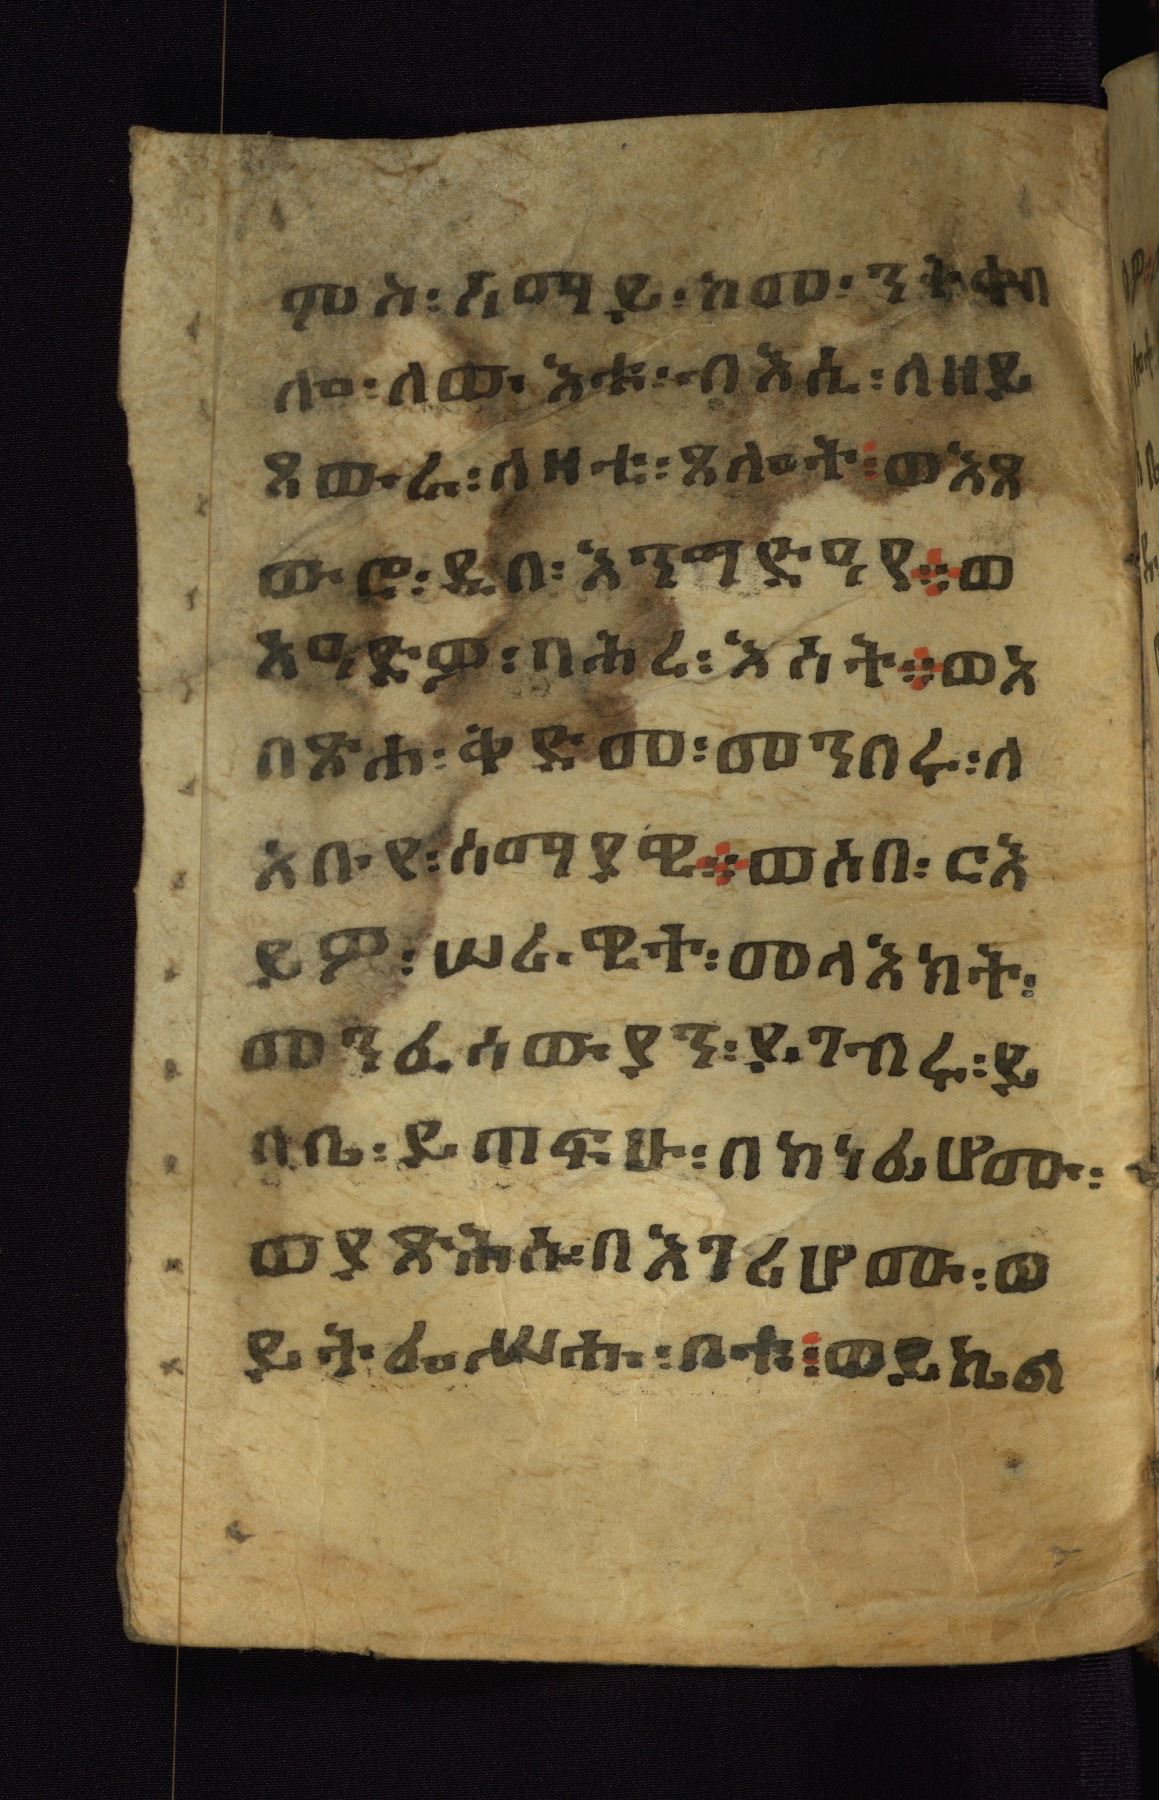 ምስ፡ ሰማይ፡ ከመ፡ ንትቀበ
ሎ፡ ለውእቱ፡ ብእሲ፡ ለዘይ
ጸውራ፡ ለዛቲ፡ ጸሎት፡ ወእጸ
ውሮ፡ ዲበ፡ እንግድዓየ። ወ
እዓድም፡ ባሕረ፡ እሳት። ወእ
በጽሐ፡ ቅድመ፡ መንበሩ፡ ለ
አቡየ፡ ሰማያዊ። ወሰበ፡ ርእ
ይዎ፡ ሠራዊተ፡ መላእክት፡
መንፈሳውያን፡ ያንብሩ፡ ይ
ቤ፡ ይጠፍሁ፡ በክነፊሆሙ፡
ወያጽሕሱ፡ በእገሪሆሙ፡ ወ
ይትፌሥሑ፡ ቦቱ፡ ወይኬል